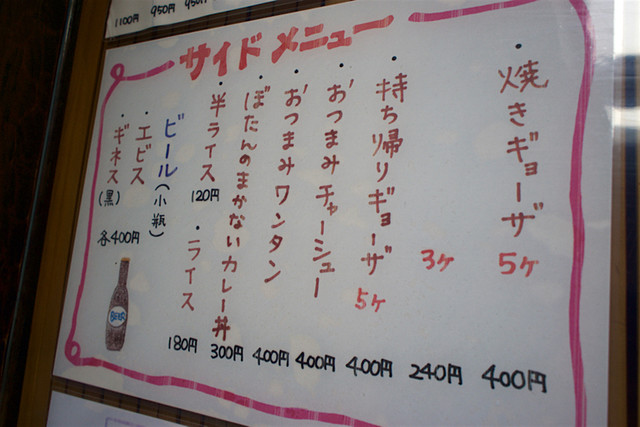 1100円 950円 950円
サイドメニュー
・焼きギョーザ 5ケ 400円
3ケ 240円
・持ち帰りギョーザ 5ケ 400円
・おつまみチャーシュー 400円
・おつまみワンタン 400円
・ぼたんのまかないカレー丼 300円
・半ライス 120円
・ライス 180円
ビール(小瓶)
・エビス
・ギネス(黒)
各400円
BEER